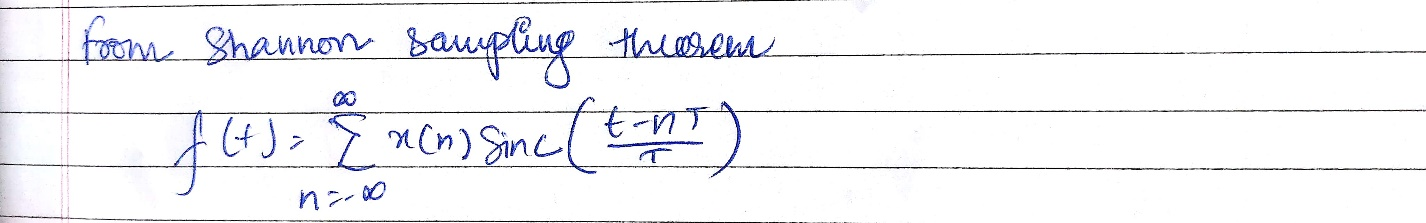 from Shannon sampling theorem
f(t) = ∞ Σ n=-∞ x(n) Sinc( (t-nT)/T )